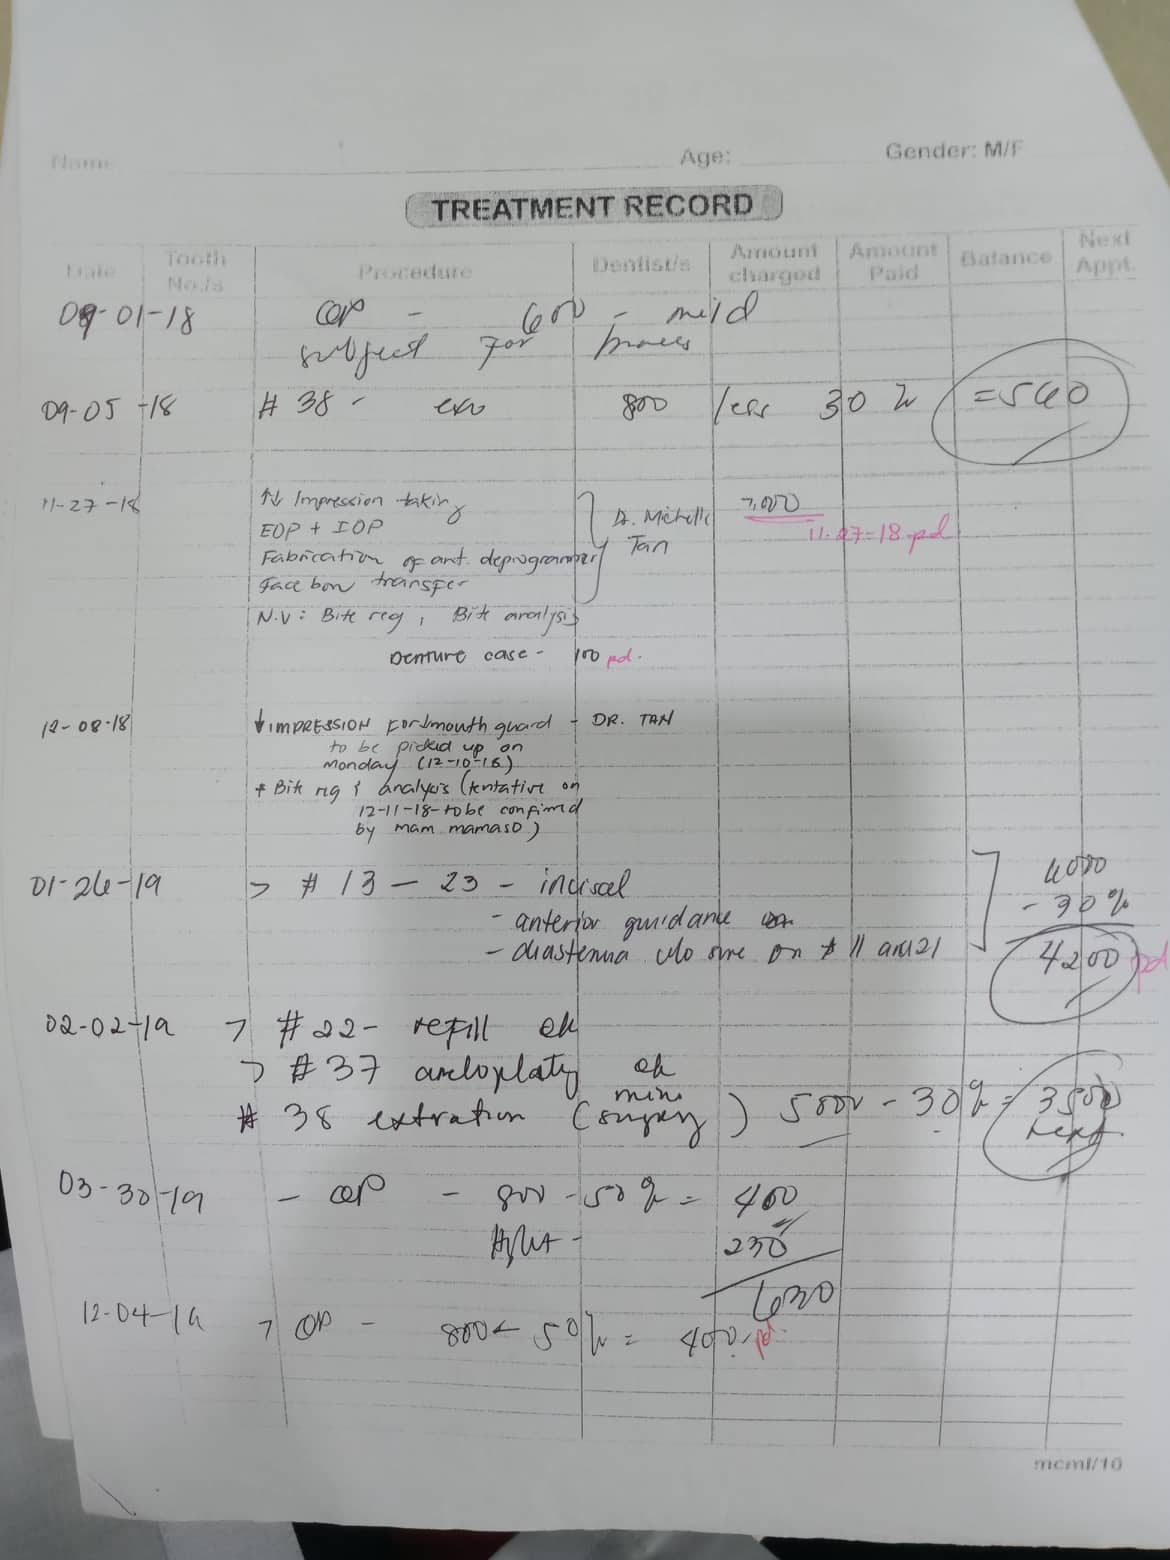 Name Age: Gender: M/F
TREATMENT RECORD
Date Tooth No./s Procedure Dentist/s Amount charged Amount Paid Balance Next Appt.
09-01-18 OP - 600 - mild
subject for braces
09-05-18 # 38 - exo 800 less 30 % = 560
11-27-18 ↑↓ Impression taking Dr. Michelle Tan 7,000
EOP + IOP 11-27-18 pd
Fabrication of ant. deprogrammer
Face bow transfer
N.V: Bite reg, Bite analysis
Denture case - 100 pd.
12-08-18 ↓ IMPRESSION for mouth guard - DR. TAN
to be picked up on
monday (12-10-18)
* Bite reg & analysis (tentative on
12-11-18 - to be confirmd
by mam mamaso)
01-26-19 > # 13 - 23 - incisal 6000
- anterior guidance - 30 %
- diastema clo sure on # 11 and 21 4200 pd
02-02-19 > # 22 - refill ok
> # 37 ameloplasty ok
# 38 extration (mini surgery) 5000 - 30% = 3500
next
03-30-19 - OP - 800 - 50 % = 400
230
630
12-04-19 > OP - 800 - 50 % = 400 - pd.
mcml/10